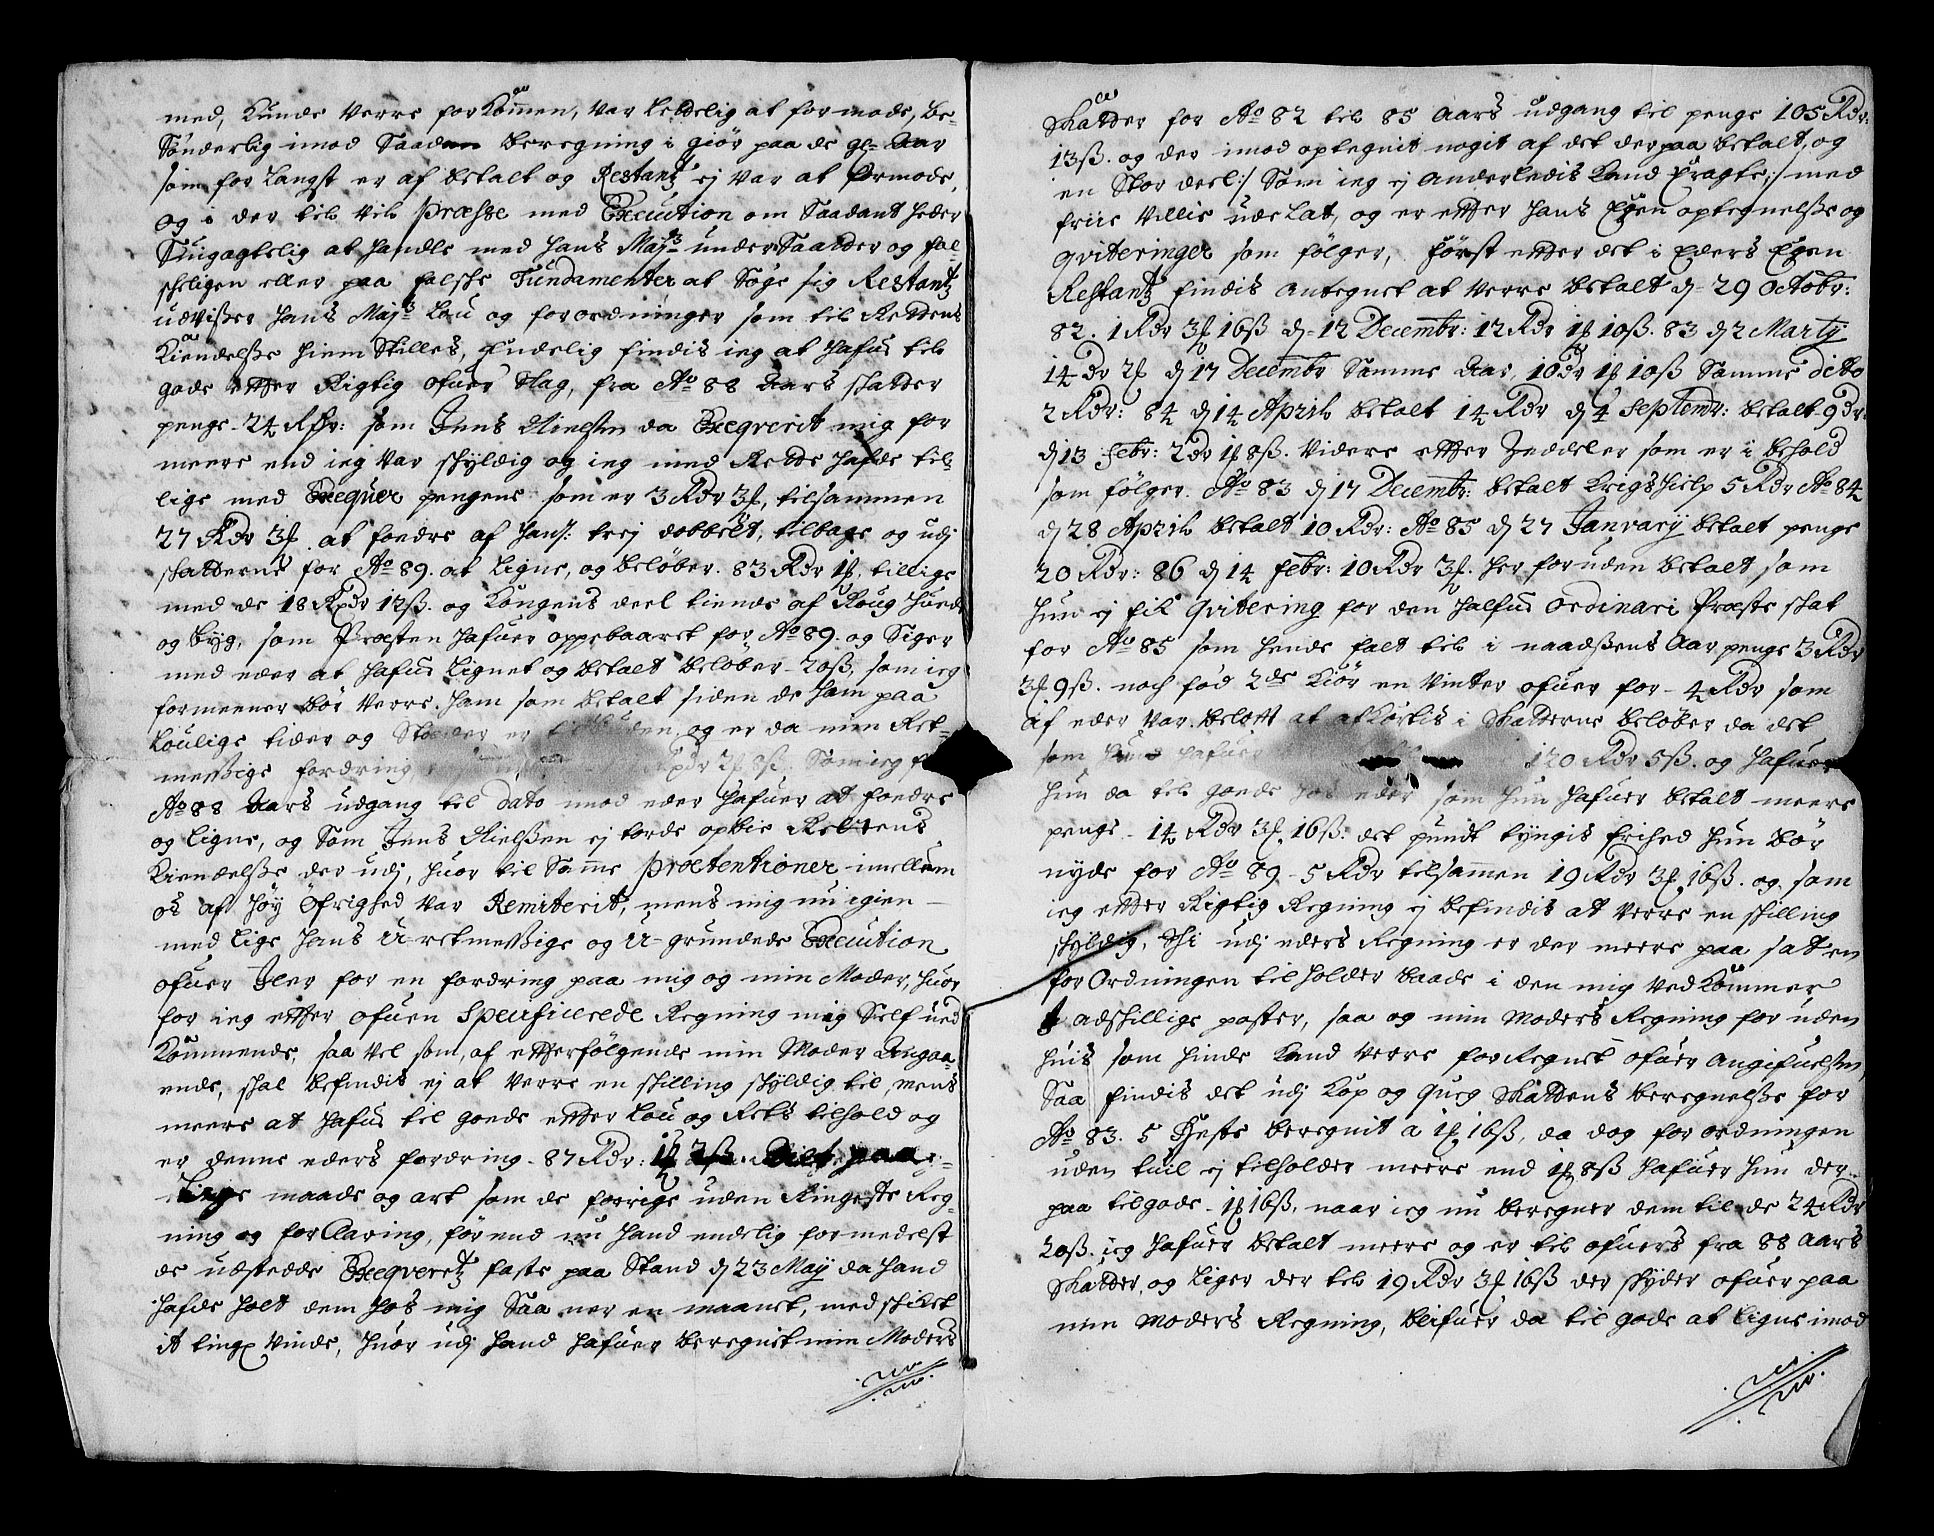 med, Kunde Verre forKom̄en, Var Letdelig at formode, be-
Sönderlig imod Saadan beregning i giör paa de gl. Aar
som for Langst er af betalt og Restantz ej Var at formode,
og i der til vil præsse med Execution om Saadant heder
Suigagtelig at handle med Hans Majts underSaatter og fal-
skeligen eller paa falske Fundamenter at Söge sig Restantz
udvisser Hans Majts Lou og forordninger som til Rettens
Kiendelsse hiem Stilles, Endelig findis ieg at Hafue til
gode efter Rigtig ofuer Slag, fra Ao 88 Aars skatter
penge 24 Rdr: som Jens Nielsen da Exeqverit mig for
meere end ieg Var skyldig og ieg med Rette Hafde til
lige med Exequer pengene som er 3 Rdr 3f, tilsammen
27 Rdr 3f. at foedre af Hans: trej dobbelt, tilbage og udj
skatterne for Ao 89. at Ligne, og beløber. 83 Rdr 1f, tillige
med de 18 Rdr 12ß. og Kongens deel tiende af Roug Huede
og byg, som Præsten Hafuer oppebaaret for Ao 89. og Siger
med eder at Hafue Lignet og betalt beløber 20ß, som ieg
formeener bör Verre. Ham som betalt siden de Ham paa
Loulige tider og Steder er og er da min Ret-
messige fordring Rdr 2f 8ß. Som ieg
Ao 88 Aars udgang til dato imod eder Hafuer at foedre
og Ligne, og Som Jens Nielssen ej torde opbie Rettens
Kiendelsse der udj, huor til Sam̄e prætentioner imellem
os af Høy Öfrighed Var Remiterit, mens mig nu igien
med Lige Hans U-retmessige og U-grundede Execution
ofuer Iler for en fordring paa mig og min Moder, huor
for ieg efter ofuen Specificerede Regning mig Self ued
Kom̄ende, saa Vel som, af efterfölgende min Moder Angaa
ende, skal befindis ej at Verre en skilling skyldig til, mens
meere at Hafue til goede efter Lou og Rets tilhold og
er denne eders fordring 87 Rdr: 1f 2ß. paa
Lige maade og art som de forrige uden Ringeste Reg-
ning og forClaring, förend nu Hand endelig formedelst
de udstedde Exeqverere faste paa Stand d 23 Maij da Hand
Hafde Holt dem Hos mig Saa ner en maanet, med skicket
it tings Vinde, Huor udj Hand Hafuer beregnet min Moders
Skatter for Ao 82 til 85 Aars udgang til penge 105 Rdr:
13ß. og der imod optegnit nogit af det derpaa betalt, og
en Stor deel:/ Som ieg ej Anderledis Kand Eragte,:/ med
friie Villie ude Lat, og er efter Hans Egen optegnelsse og
qviteringer som fölger, först efter det i Eders Egen
Restantz findis Antegnet at Verre betalt d 29 Octobr:
82. 1 Rdr 3f 16ß d 12 Decembr: 12 Rdr 1f 10ß. 83 d 2 Martij
14 dr 2f d 17 Decembr Samme Aar, 10 dr 1f 10ß Samme dito
2 Rdr: 84 d 14 April betalt 14 Rdr d 4 Septembr: betalt 9 dr:
d 13 Febr: 2 dr 1f 8ß. Videre efter Zeddeler som er i behold
som fölger. Ao 83 d 17 Decembr: betalt Krigs Hielp 5 Rdr Ao 84
d 28 April betalt 10 Rdr: Ao 85 d 27 Janvarij betalt penge
20 Rdr: 86 d 14 Febr: 10 Rdr 3f. her foruden betalt som
Hun ej fik qvitering for den Halfue ordinari Præste skat
for Ao 85 som hende falt til i naadssens Aar penge 3 Rdr
3f 9ß. noch fød 2de Kiör en Vinter ofuer for 4 Rdr som
af eder Var belofft at afKortis i Skatterne beløber da det
som Hund Hafuer 120 Rdr 5ß. og Hafuer
Hun da til goede hos eder som Hun Hafuer betalt meere
penge 14 Rdr 3f. 16ß: det pundt tyngis frihed Hun bör
nyde for Ao 89 5 Rdr tilsam̄en 19 Rdr 3f 16ß. og som
ieg efter Rigtig Regning ej befindis at Verre en skilling
skyldig, Thi udj eders Regning er der meere paa sat en
for Ordningen til holder baade i den mig Ved Kom̄mer
adskillige poster, saa og min Moders Regning foruden
huis som hinde Kand Verre forRegnet ofuer Angifuelsen,
Saa findis det udj Kop og Queg Skattens beregnelsse for
Ao 83. 5 Heste beregnit a 1f 16ß, da dog forordningen
uden tuil ej tilholder meere end 1f 8ß Hafuer Hun der-
paa tilgode 1f 16ß, naar ieg nu beregner dem til de 24 Rdr
20ß. ieg Hafuer betalt meere og er til ofuers fra 88 Aars
Skatter, og Liger der til 19 Rdr 3f 16ß der skyder ofuer paa
min Moders Regning, blifuer da til gode at Ligne imod